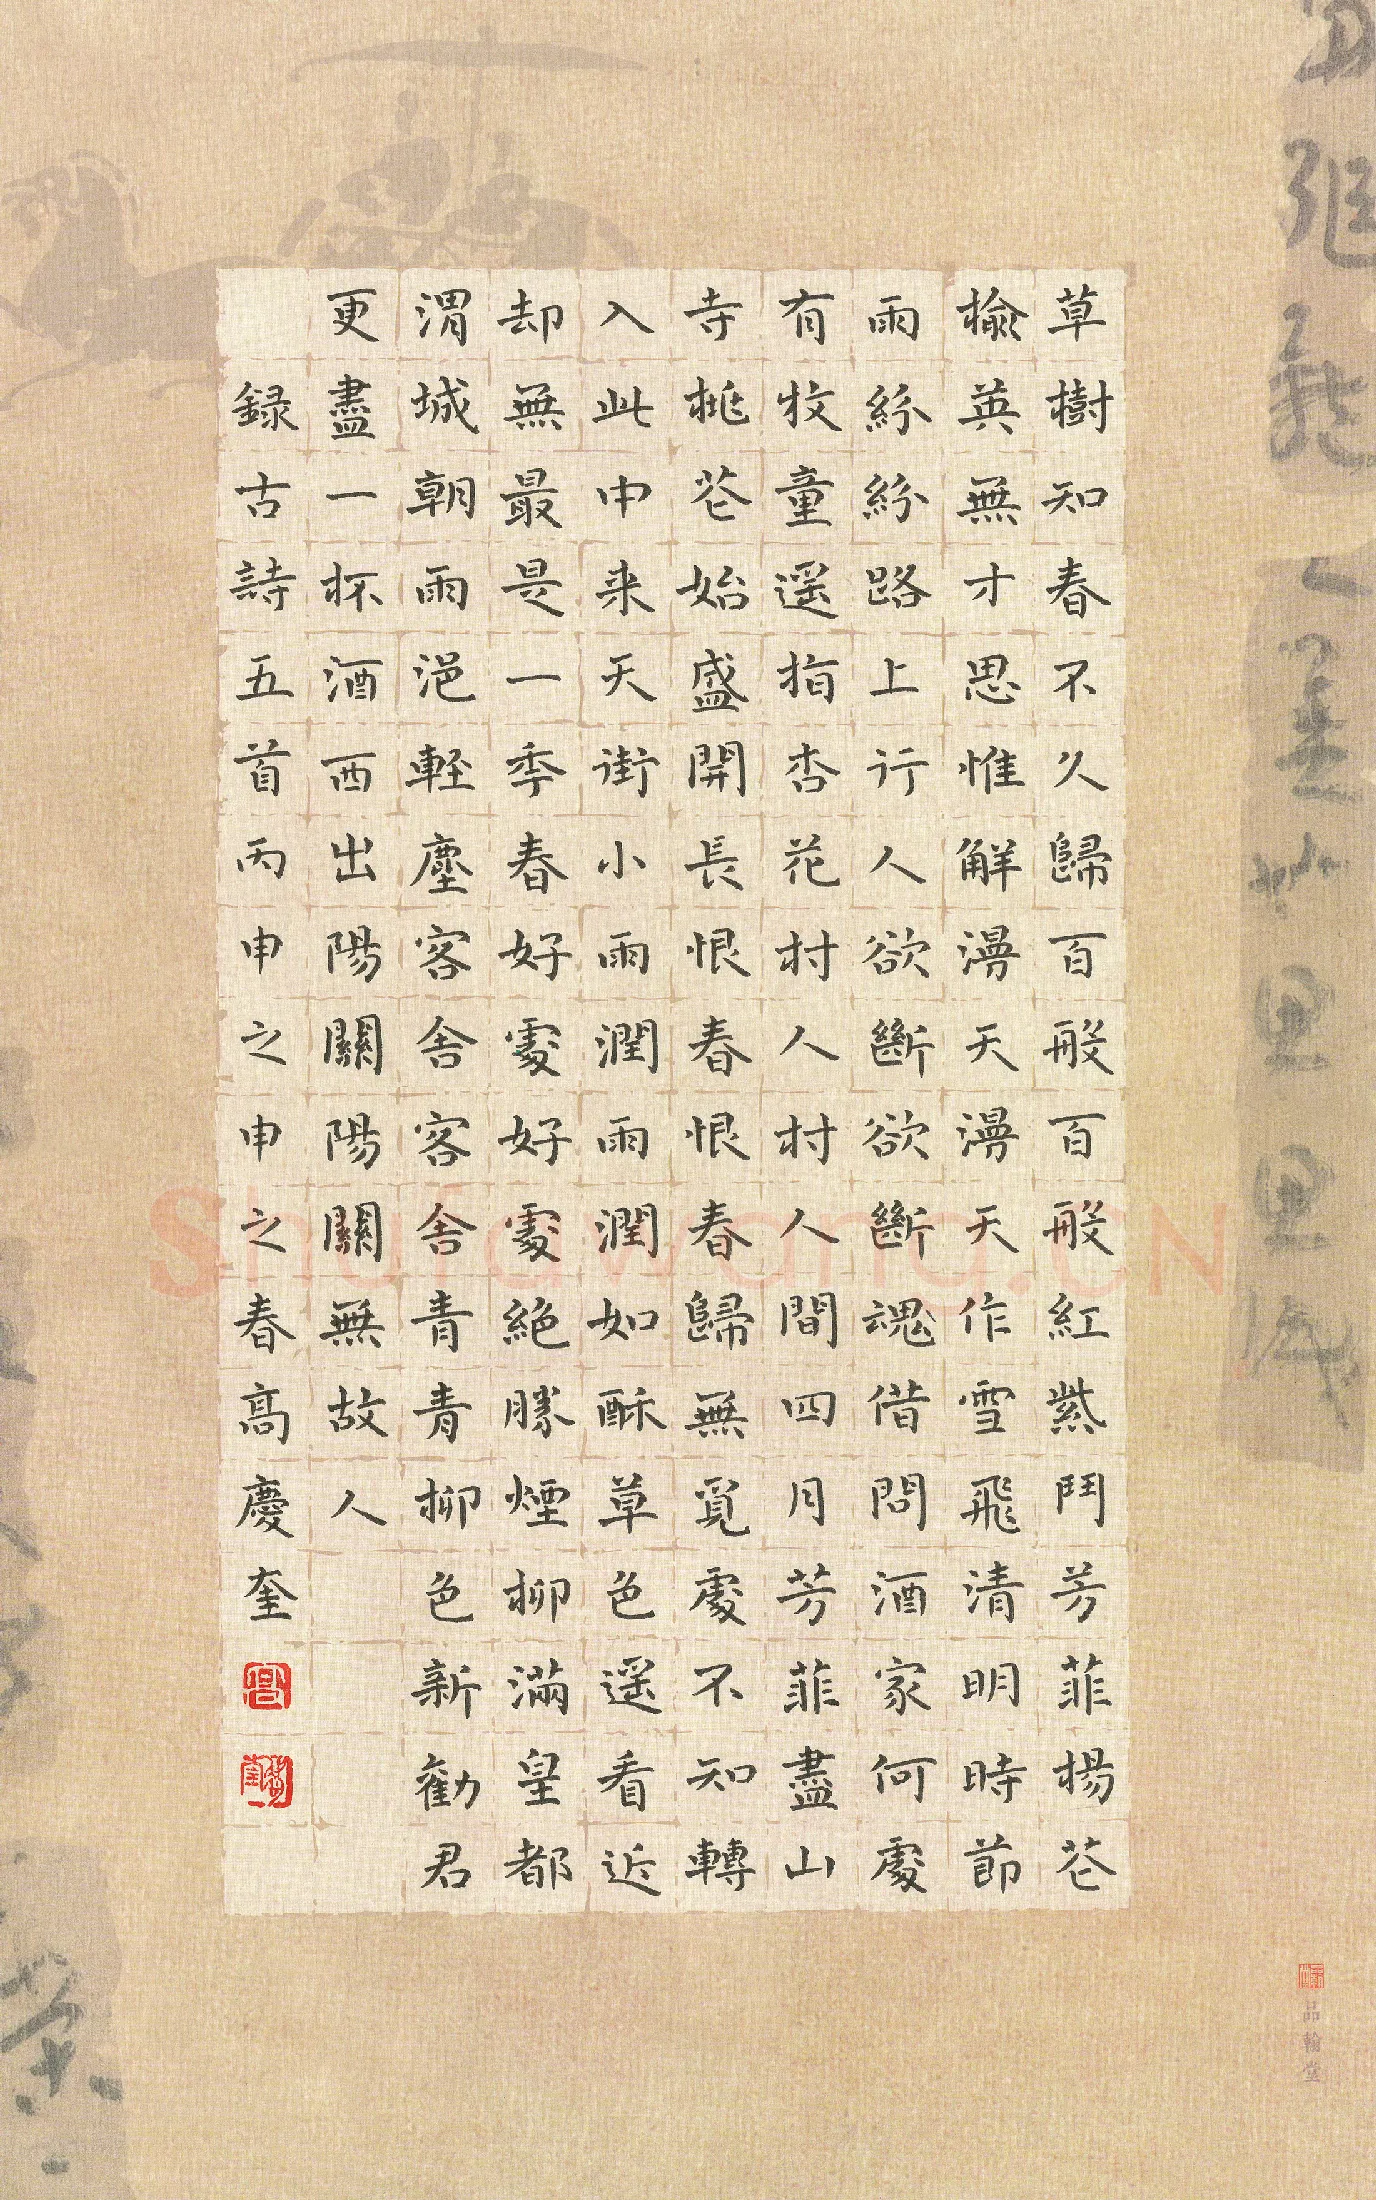 草樹知春不久歸百般百般紅紫鬥芳菲楊花
榆英無才思惟解漫天漫天作雪飛清明時節
雨紛紛路上行人欲斷欲斷魂借問酒家何處
有牧童遥指杏花村人村人間四月芳菲盡山
寺桃花始盛開長恨春恨春歸無覓處不知轉
入此中来天街小雨潤雨潤如酥草色遥看近
却無最是一秊春好處好處絶勝煙柳滿皇都
渭城朝雨浥輕塵客舍客舍青青柳色新勸君
更盡一杯酒西出陽關陽關無故人
録古詩五首丙申之申之春高慶奎
品翰堂
Shufawang.CN